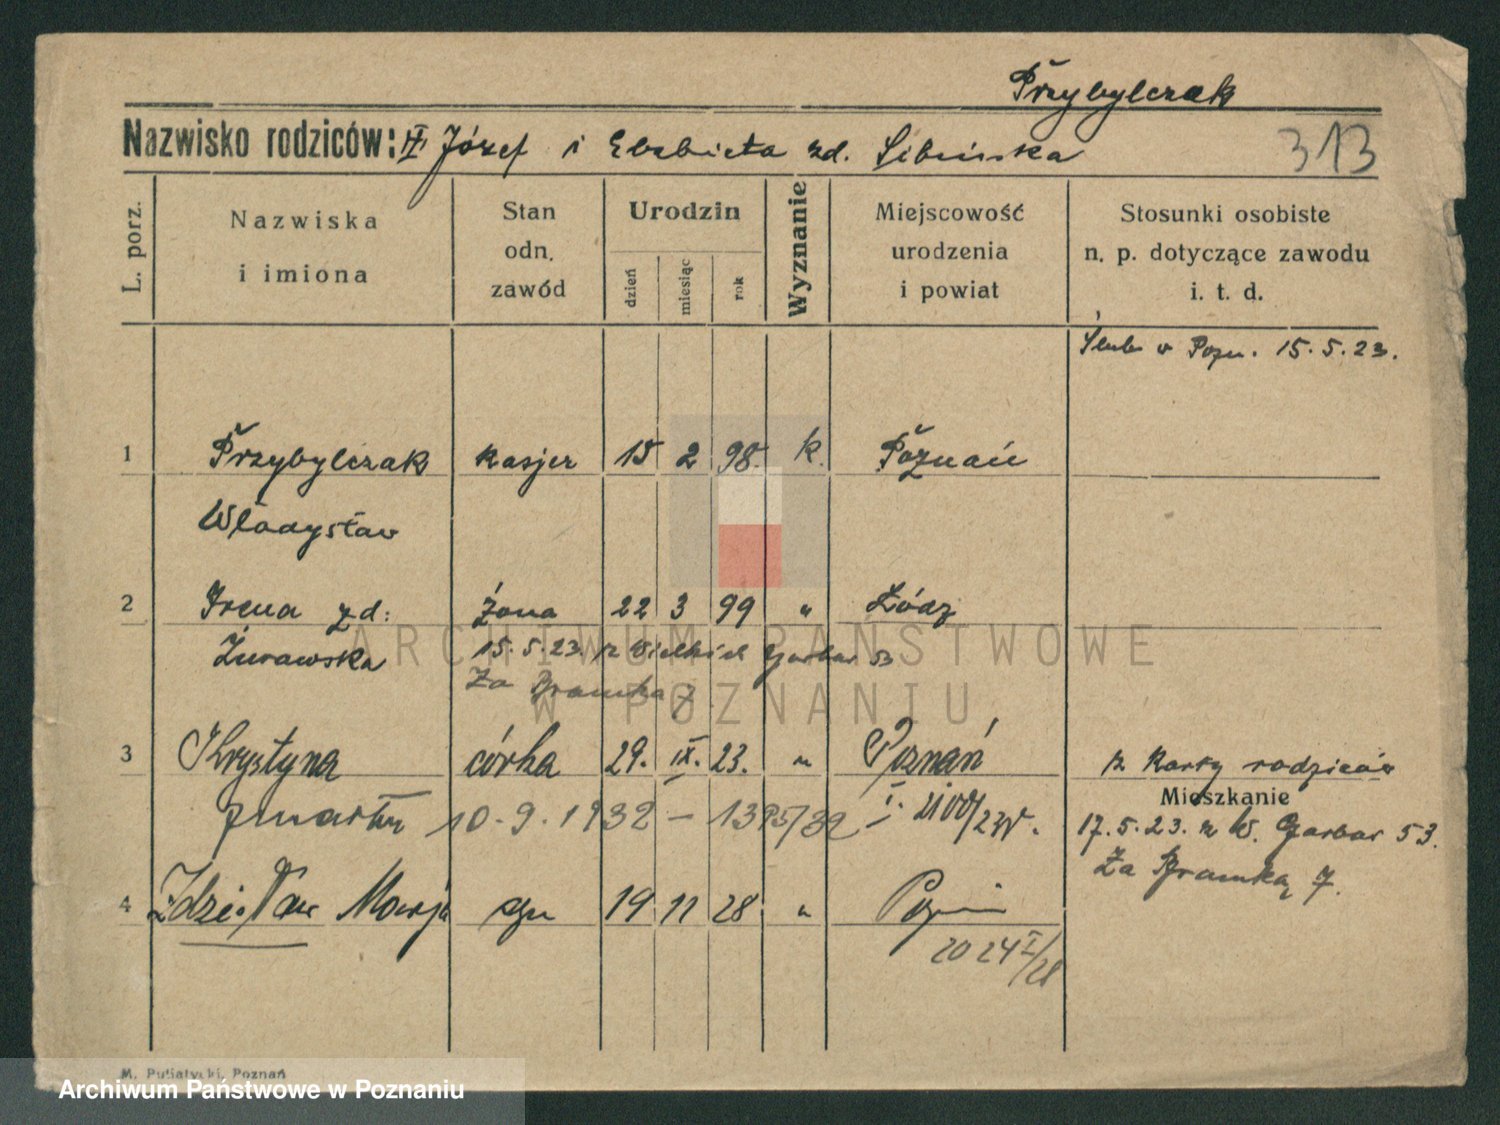 Przybylczak
Nazwisko rodziców: Józef i Elżbieta zd.
313
L. porz.
Nazwiska i imiona
Stan odn. zawód
Urodzin
dzień miesiąc rok
Wyznanie
Miejscowość urodzenia i powiat
Stosunki osobiste n. p. dotyczące zawodu i. t. d.
Ślub w Pozn. 15.5.23.
1 Przybylczak kasjer 15 2 98. k. Poznań
Władysław
2 Irena zd: żona 22 3 99 " Łódz
Żurawska 15.5.23. z Wielkich Garbar 53
Za Bramką 7
3 Krystyna córka 29. IX. 23. " Poznań z Karty rodziców
zmarła 10-9-1932 - 1395/32 I.
Mieszkanie
17.5.23. z W. Garbar 53.
Za Bramką 7.
4 Zdzisław Marja syn 19 11 28 "
2024 I/28
M. Putiatycki, Poznań
ARCHIWUM PAŃSTWOWE
W POZNANIU
Archiwum Państwowe w Poznaniu